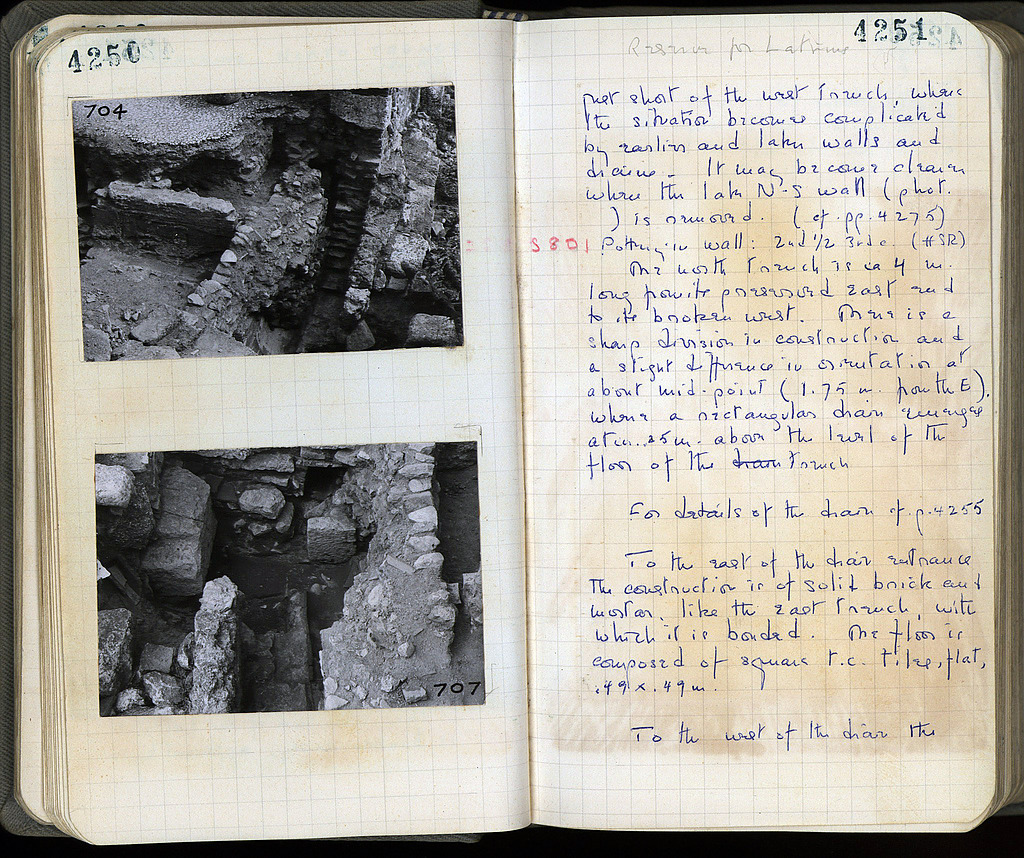 4250
704
707
4251
Reserve for Latrine
just short of the west trench, where
the situation becomes complicated
by earlier and later walls and
drains. It may become clearer
where the late N-S wall (phot.
) is removed. (cf. pp. 4275)
S801 Pottery in wall: 2nd 1/2 3rd c. (HSR)
The north trench is ca 4 m.
long from its preserved east end
to its broken west. There is a
sharp division in construction and
a slight difference in orientation at
about mid-point (1.75 m. from the E).
where a rectangular drain emerges
at .25 m. above the level of the
floor of the drain trench
For details of the drain cf. p. 4255
To the east of the drain entrance
the construction is of solid brick and
mortar, like the east trench, with
which it is bonded. The floor is
composed of square t.c. tiles, flat,
.49 x .49 m.
To the west of the drain the